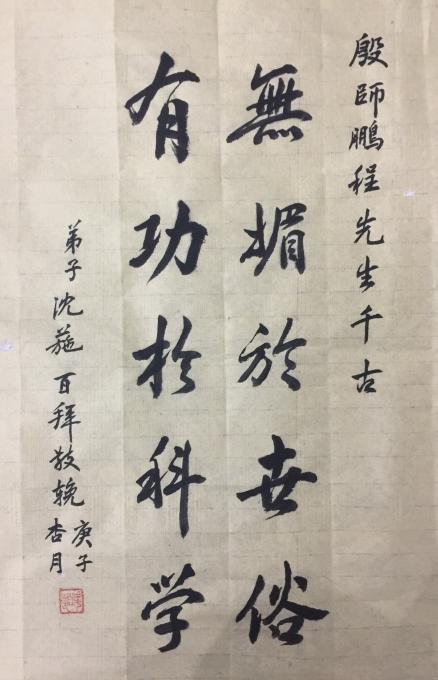 殷師鵬程先生千古
無媚於世俗
有功於科学
弟子沈蕤百拜敬輓
庚子
杏月